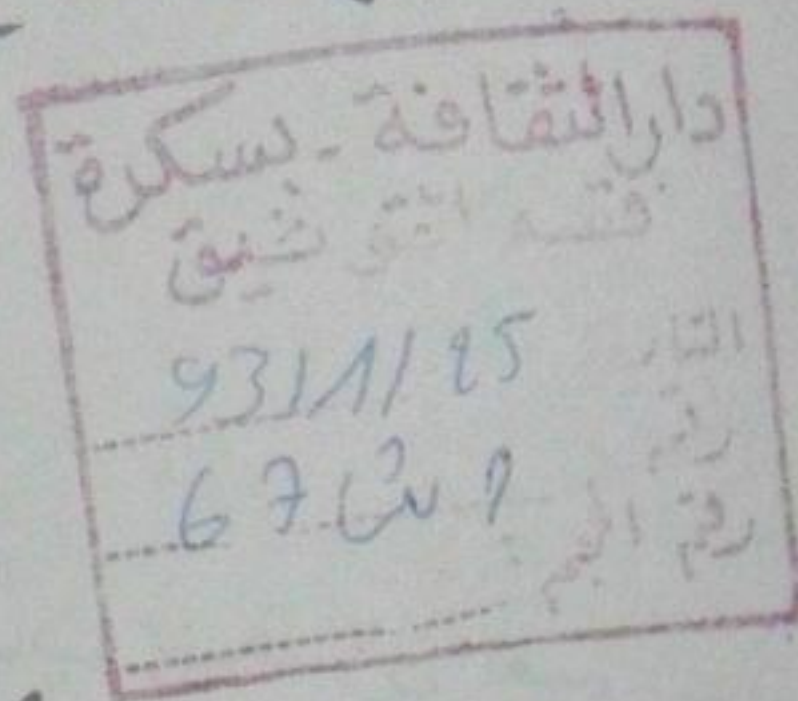 دار الثقافة - بسكرة
قسم التوثيق
93/1/25
رقم 67
رقم